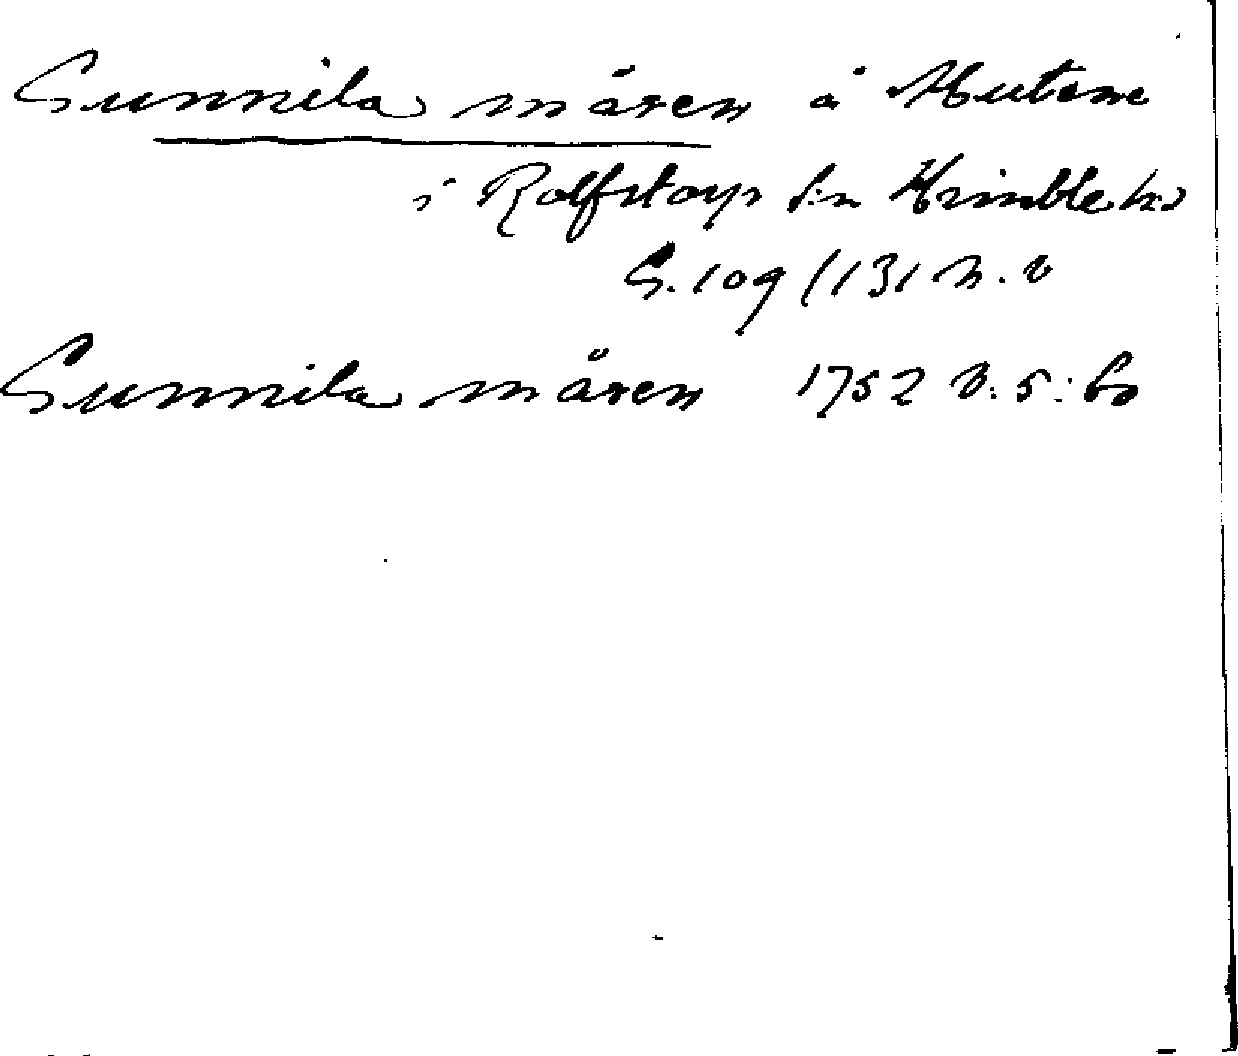 Gunnila måsen å Hutome
i Rolfstorps sn Himble hd
G. 109 (131 n. v
Gunnila måsen 1752 v. 5: